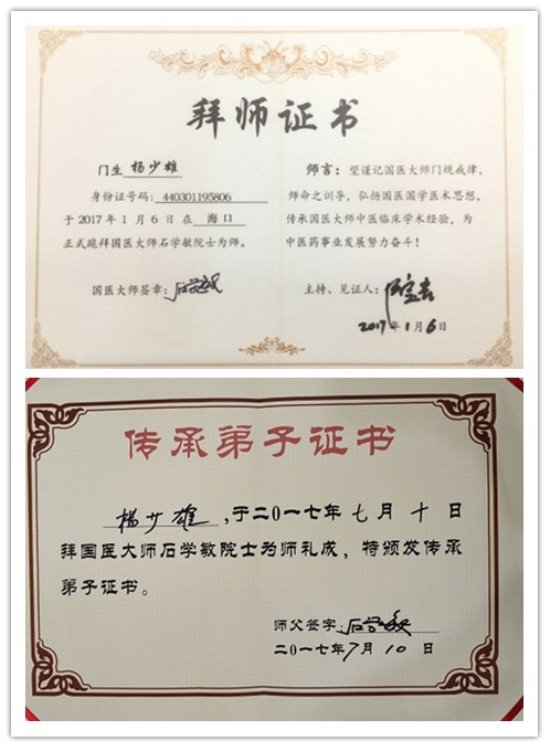 拜师证书
门生 杨少雄
身份证号码：440301195806
于 2017 年 1 月 6 日 在 海口
正式跪拜国医大师石学敏院士为师。
国医大师签章：石学敏
师言：望谨记国医大师门规戒律，
师命之训导，弘扬国医国学医术思想，
传承国医大师中医临床学术经验，为
中医药事业发展努力奋斗！
主持、见证人：
2017 年 1 月 6 日
传承弟子证书
杨少雄，于二〇一七年 七 月 十 日
拜国医大师石学敏院士为师礼成，特颁发传承
弟子证书。
师父签字：石学敏
二〇一七年 7 月 10 日